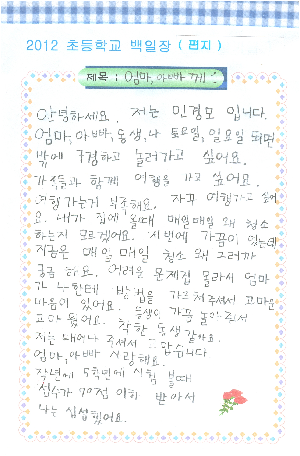 2012 초등학교 백일장 (편지)
제목 : 엄마, 아빠 께
안녕하세요. 저는 민경모 입니다.
엄마, 아빠, 동생, 나 토요일, 일요일 되면
밖에 구경하고 놀러가고 싶어요.
가족들과 함께 여행을 가고 싶어요.
여행가는게 부족해요. 자꾸 여행가고 싶어
요. 내가 집에 올때 매일매일 왜 청소
하는지 모르겠어요. 저번에 가끔이 있는데
지금은 매일 매일 청소 왜 그러까
궁금 하요. 어려운 문제집 몰라서 엄마
가 누한테 방법을 가르쳐주셔서 고마운
마음이 있어요. 동생이 가끔 놀아줘서
착한 동생 같아요.
저는 태어나 주셔서 고맙습니다
엄마, 아빠 사랑해요.
작년에 5학년에 시험 볼때
점수가 90점 이히 받아서
나는 십섭했어요.